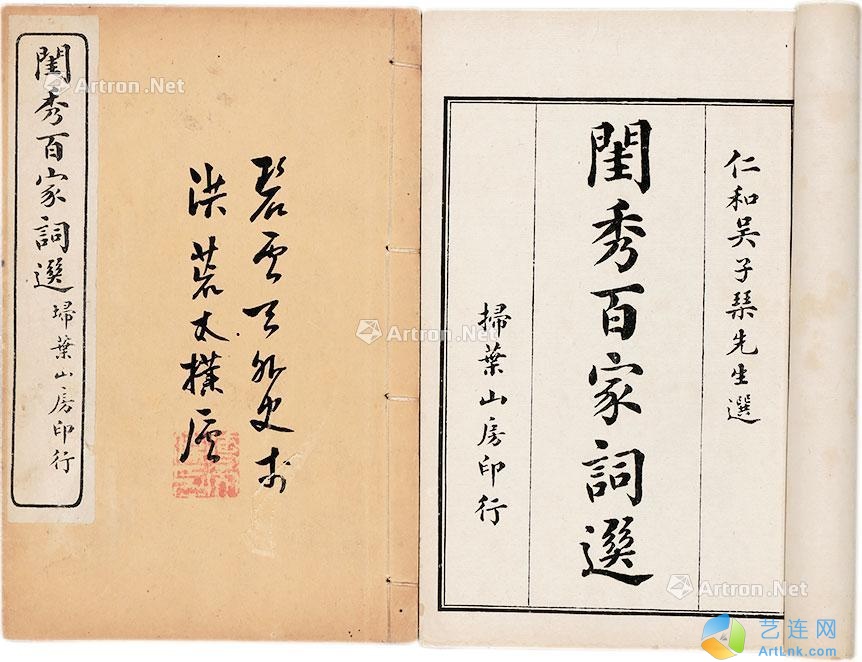 閨秀百家詞選
埽葉山房印行
碧雲天外史
仁和吳子琹先生選
閨秀百家詞選
掃葉山房印行
Artron.Net
Artron.Net
Artron.Net
Artron.Net
艺连网
ArtLnk.com